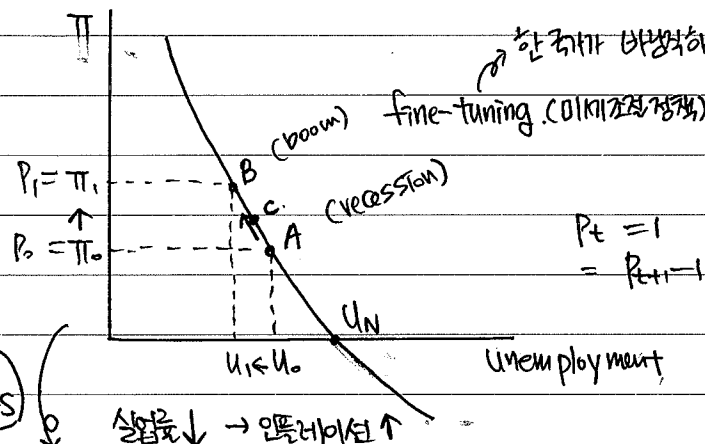 π
한 국가가 바람직한
fine-tuning (미세조절정책)
B (boom)
P₁ = π₁
C. (recession)
↑
P₀ = π₀
A
Pt = 1
= Pt+1 - 1
UN
U₁ ← U₀
unemployment
S
실업률↓ → 인플레이션↑